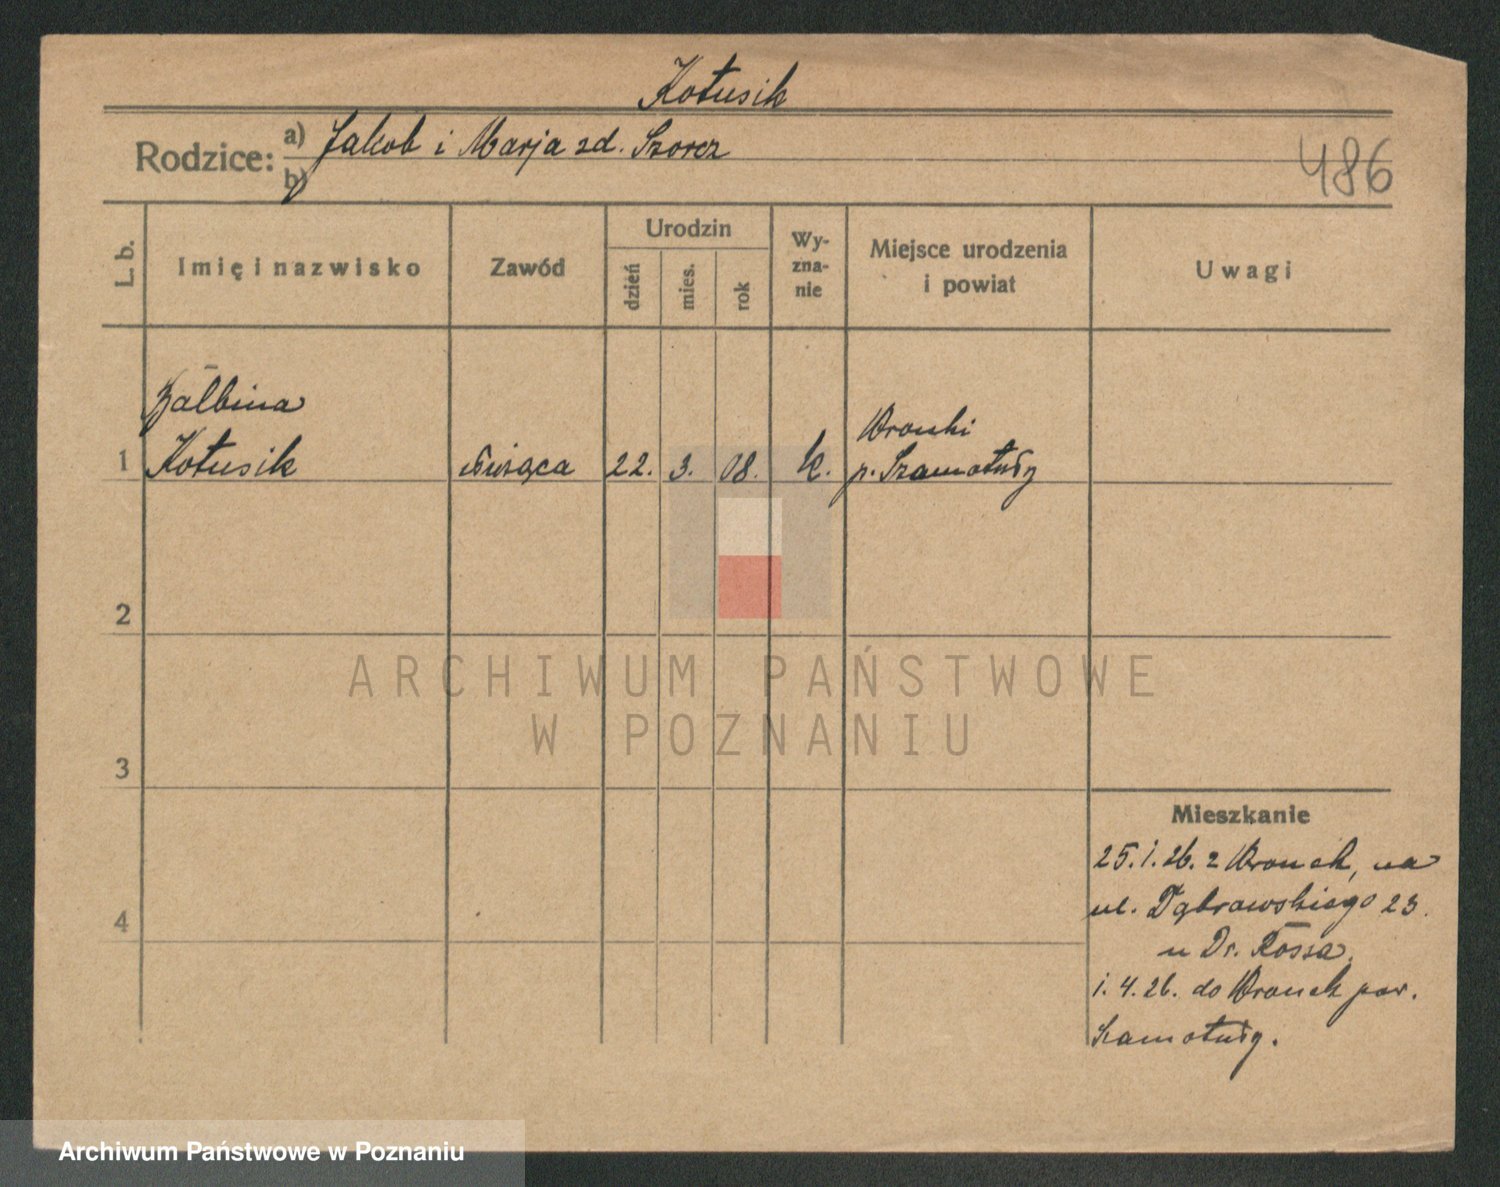 Kotusik
Rodzice: a) Jakób i Marja zd. Szorcz
b)
486
L. b.
Imię i nazwisko
Zawód
Urodzin
dzień
mies.
rok
Wy-
zna-
nie
Miejsce urodzenia
i powiat
Uwagi
Balbina
1 Kotusik służąca 22. 3. 08. k. Wronki
p. Szamotuły
2
3
4
ARCHIWUM PAŃSTWOWE
W POZNANIU
Mieszkanie
25.1.26. z Wronek, na
ul. Dąbrowskiego 23.
u Dr. Rossa.
1.4.26. do Wronek pow.
Szamotuły.
Archiwum Państwowe w Poznaniu